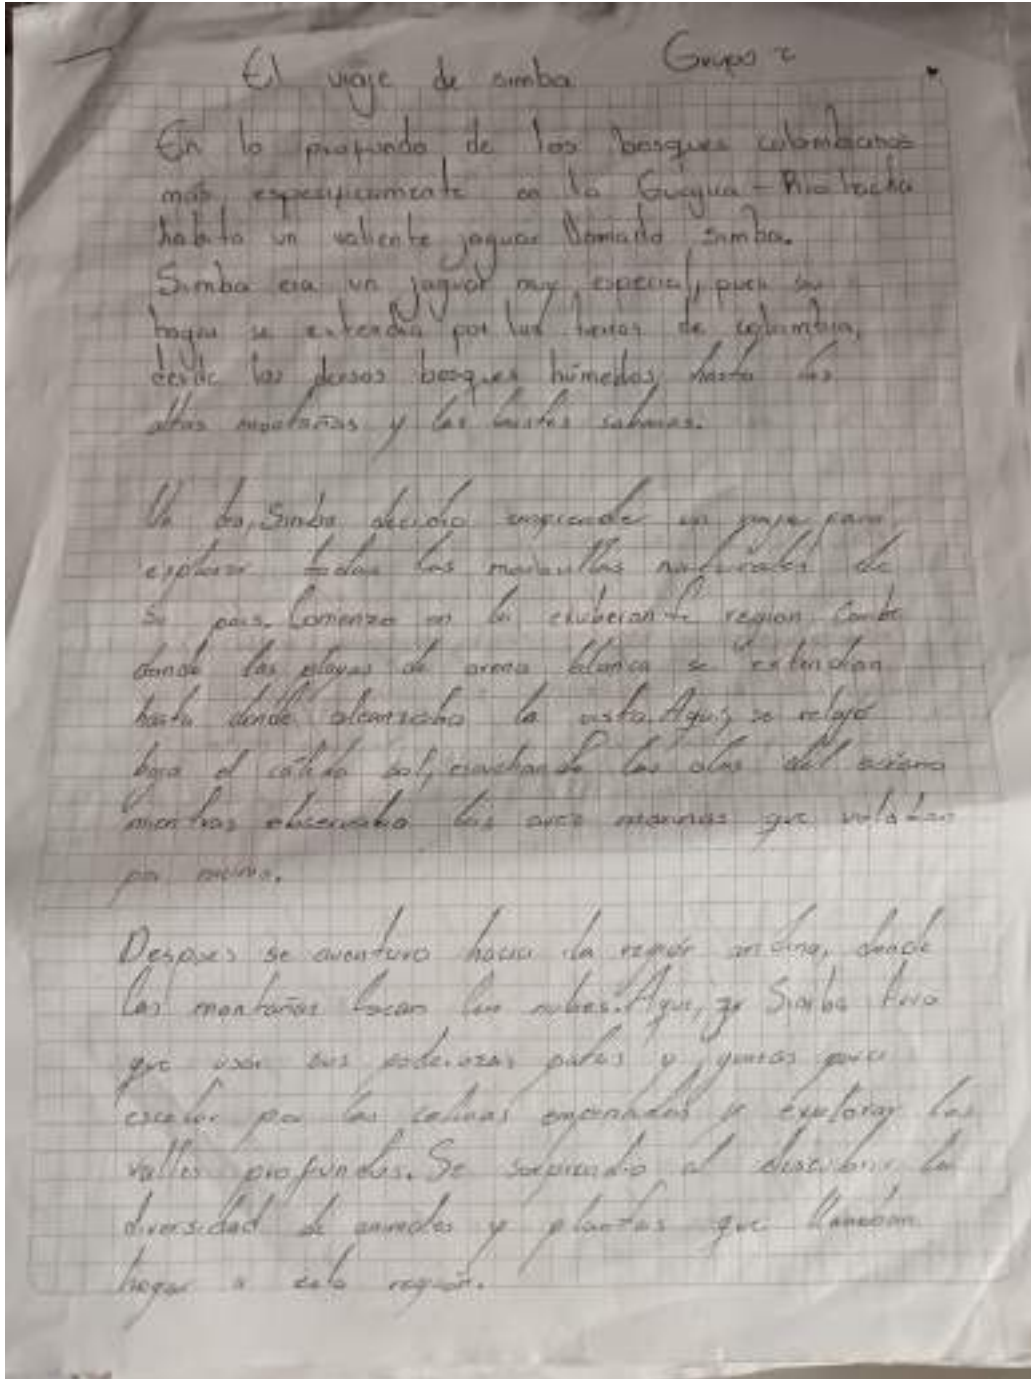 El viaje de simba Grupo 2
En lo profundo de los bosques colombianos
más espesificamente en la Guajira - Riohacha
habita un valiente jaguar llamado simba.
Simba era un jaguar muy especial, pues su
hogar se extendia por las tierras de colombia,
desde los densos bosques húmedos, hasta las
altas montañas y las bastas sabanas.
Un dia, Simba decidio emprender un viaje para
explorar todas las maravillas naturales de
su pais. Comenzo en la exuberante region Caribe
donde las playas de arena blanca se extendian
hasta donde alcanzaba la vista. Aquí, se relajó
bajo el cálido sol, escuchando las olas del océano
mientras observaba las aves marinas que volaban
por encima.
Despues se aventuro hacia la región andina, donde
las montañas tocan las nubes. Aqui, Simba tuvo
que usar sus poderosas patas y garras para
escalar por las colinas empinadas y explorar los
valles profundos. Se sorprendio al descubrir la
diversidad de animales y plantas que llamaban
hogar a esta región.